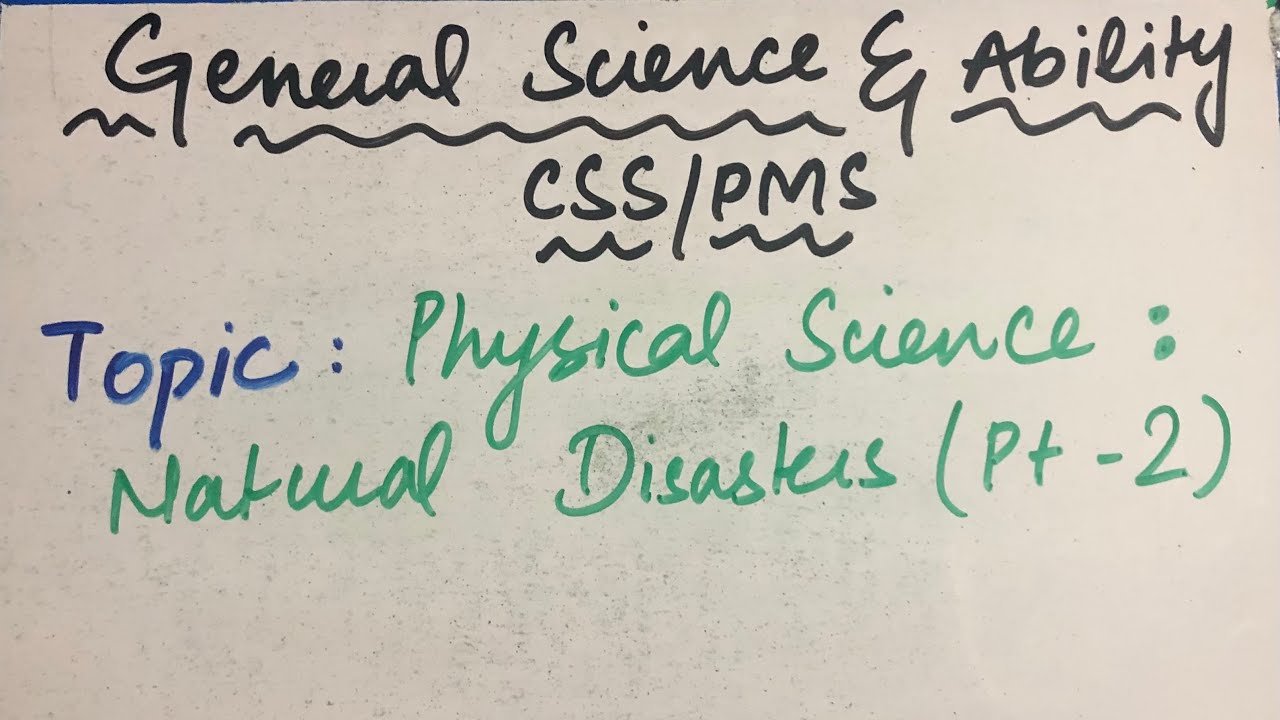 General Science & Ability
CSS/PMS
Topic: Physical Science:
Natural Disasters (Pt-2)